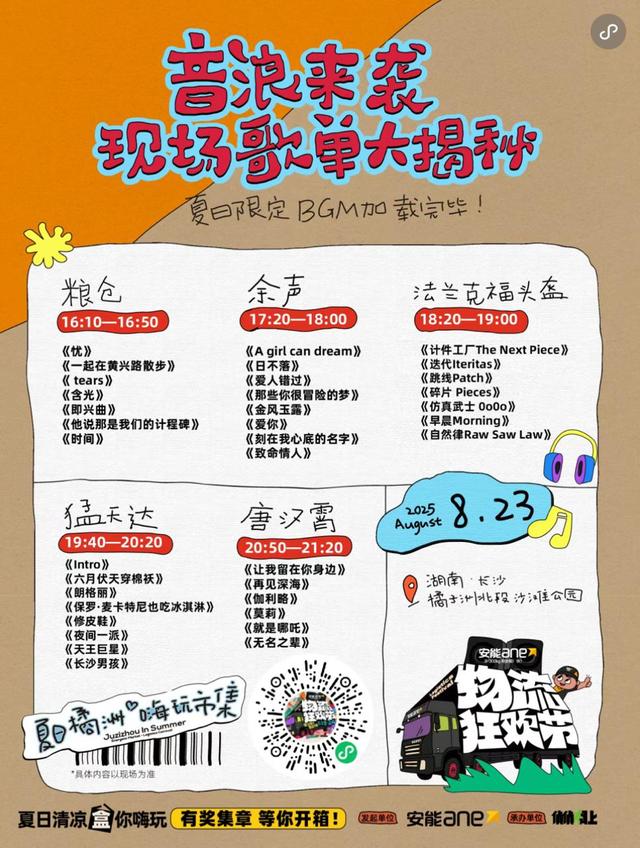 音浪来袭
现场歌单大揭秘
夏日限定BGM加载完毕!
粮仓
16:10—16:50
《忧》
《一起在黄兴路散步》
《 tears》
《含光》
《即兴曲》
《他说那是我们的计程碑》
《时间》
余声
17:20—18:00
《A girl can dream》
《日不落》
《爱人错过》
《那些你很冒险的梦》
《金风玉露》
《爱你》
《刻在我心底的名字》
《致命情人》
法兰克福头盔
18:20—19:00
《计件工厂The Next Piece》
《迭代Iteritas》
《跳线Patch》
《碎片 Pieces》
《仿真武士 0o0o》
《早晨Morning》
《自然律Raw Saw Law》
猛天达
19:40—20:20
《Intro》
《六月伏天穿棉袄》
《朗格丽》
《保罗·麦卡特尼也吃冰淇淋》
《修皮鞋》
《夜间一派》
《天王巨星》
《长沙男孩》
唐汉霄
20:50—21:20
《让我留在你身边》
《再见深海》
《伽利略》
《莫莉》
《就是哪吒》
《无名之辈》
2025
August 8.23
湖南·长沙
橘子洲北段沙滩公园
安能ane
物流
狂欢节
夏日橘洲嗨玩市集
Juzizhou In Summer
*具体内容以现场为准
物流
狂欢节
夏日清凉 盒你嗨玩 有奖集章 等你开箱! 发起单位 安能ane 承办单位